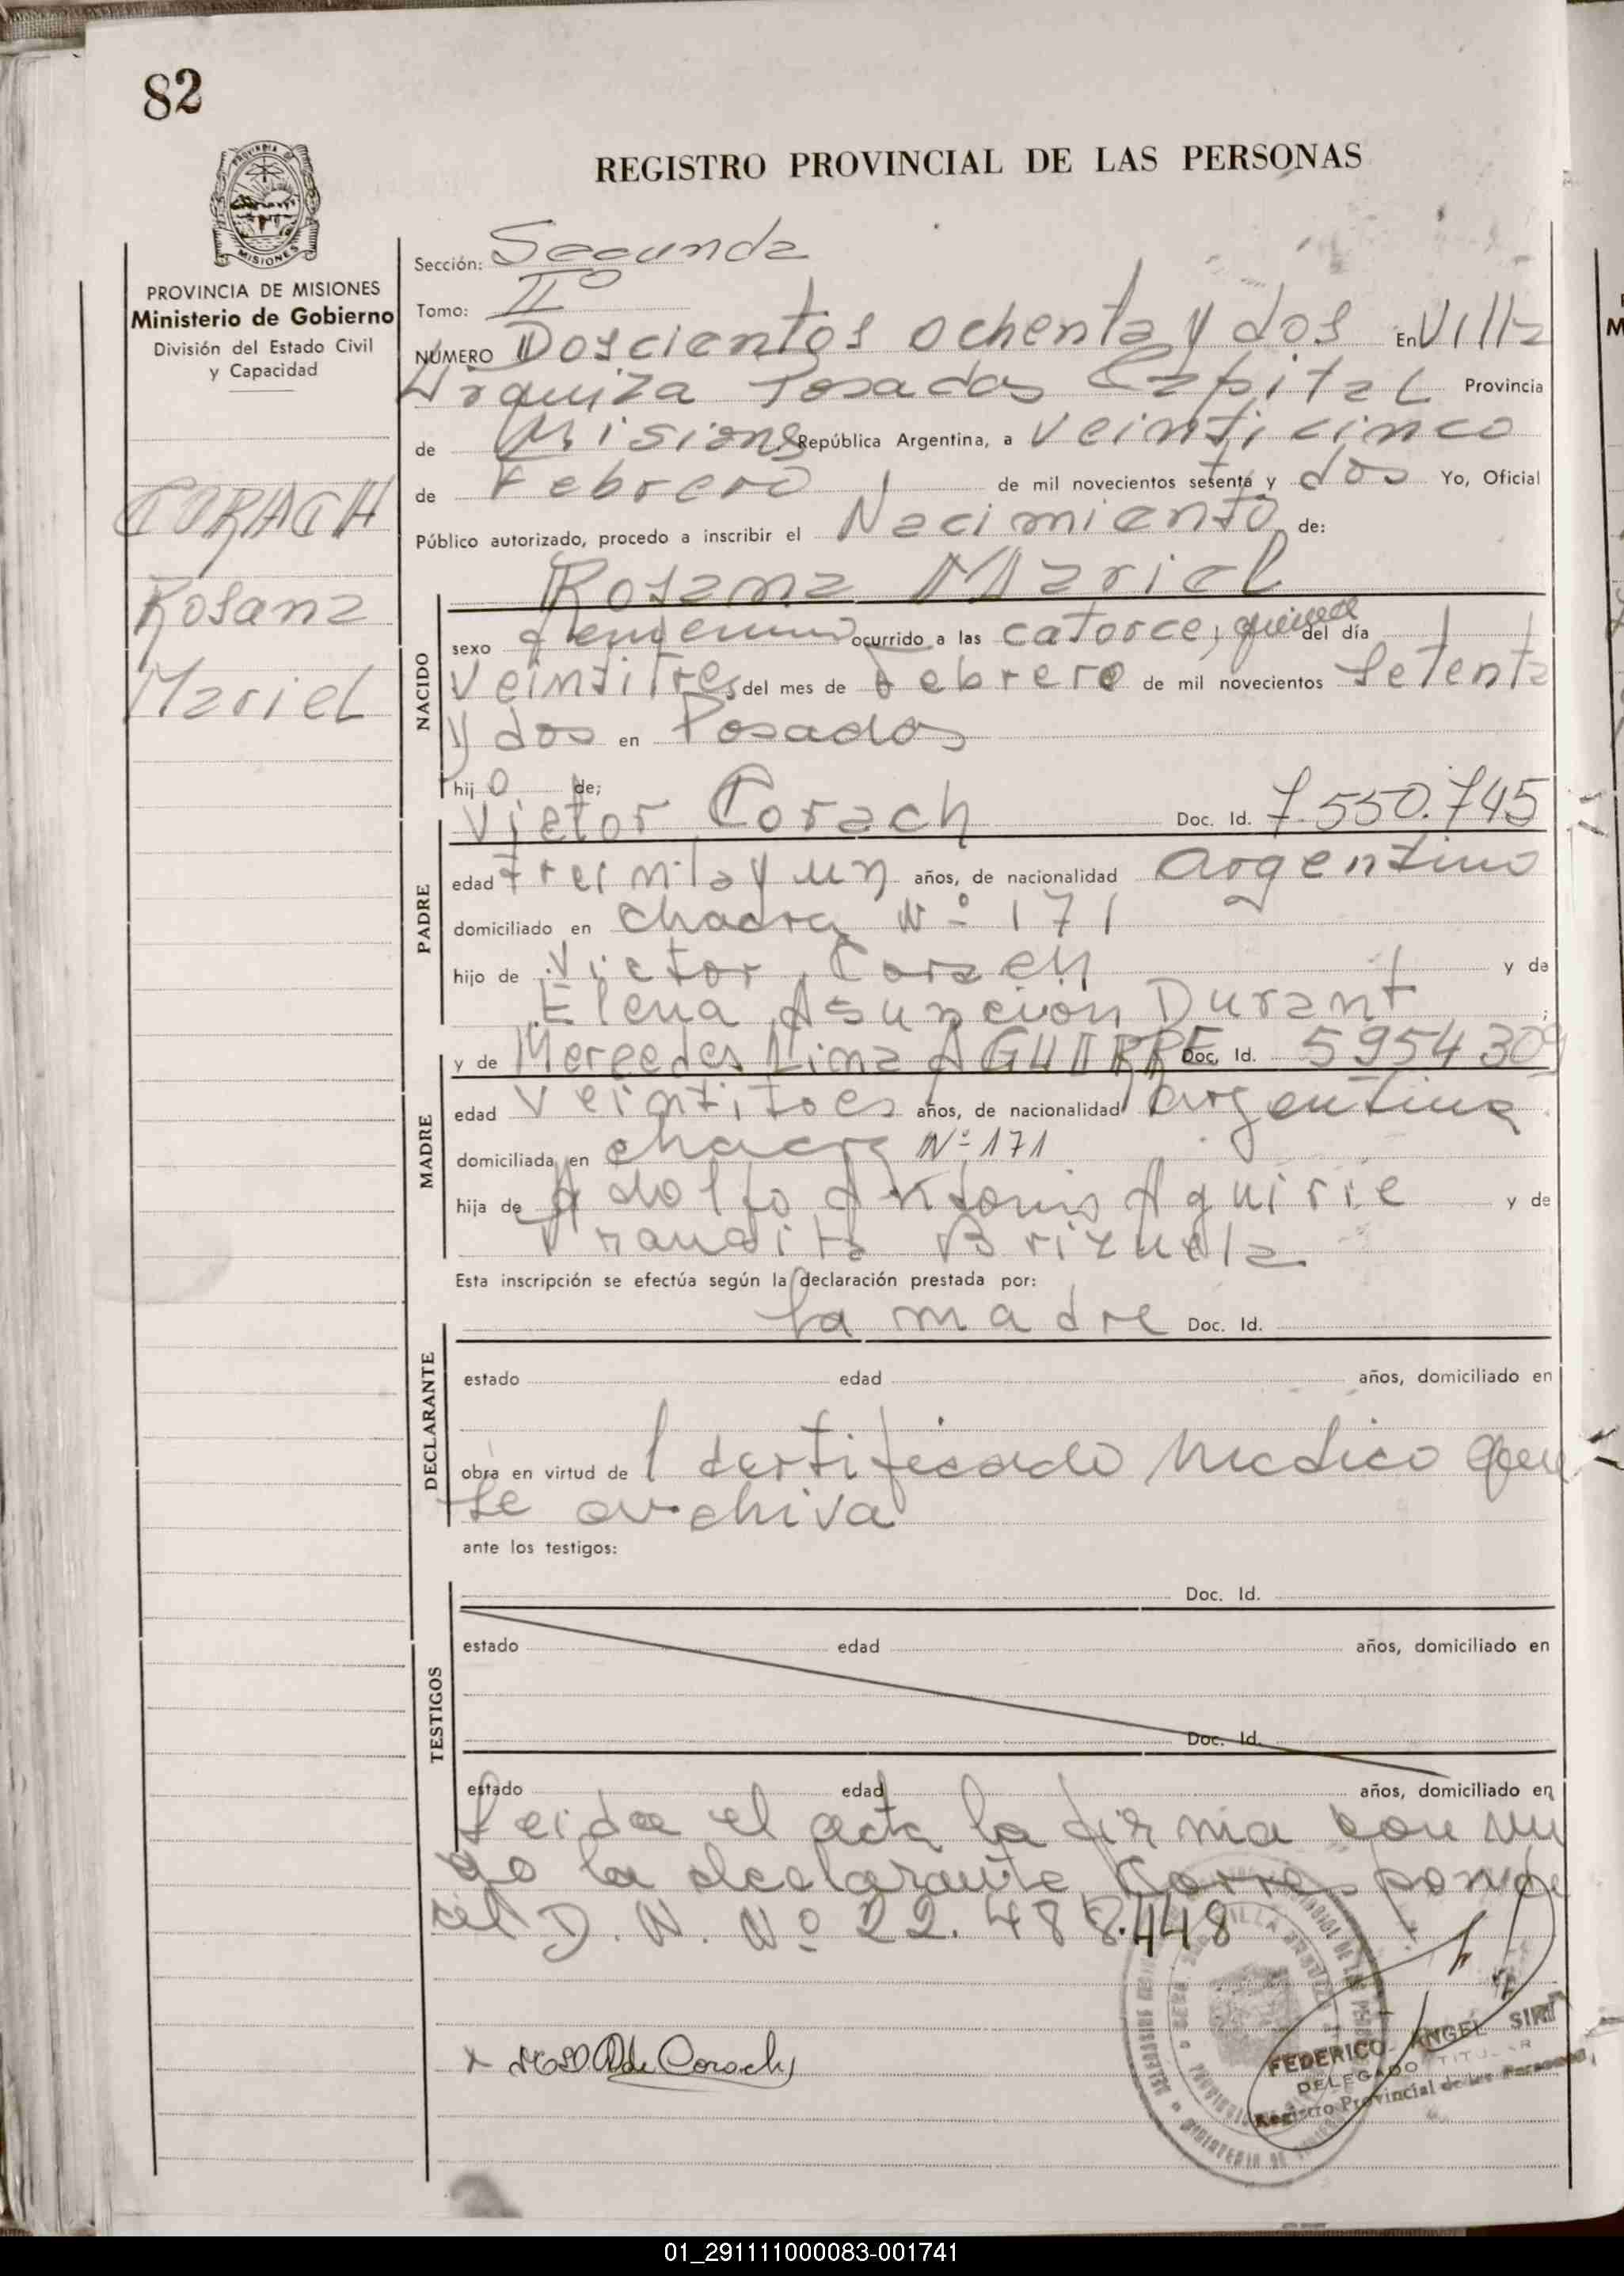 82
REGISTRO PROVINCIAL DE LAS PERSONAS
PROVINCIA DE MISIONES
Ministerio de Gobierno
División del Estado Civil
y Capacidad
CORACH
Rosana
Mariel
Sección: Segunda
Tomo: IIº
NUMERO Doscientos ochenta y dos En Villa
Urquiza Posadas Capital Provincia
de Misiones República Argentina, a veinticinco
de Febrero de mil novecientos setenta y dos Yo, Oficial
Público autorizado, procedo a inscribir el Nacimiento de:
Rosana Mariel
NACIDO
sexo femenino ocurrido a las catorce, quince del día
veintitres del mes de Febrero de mil novecientos setenta
y dos en Posadas
hijo de;
Victor Corach Doc. Id. 7.550.745
PADRE
edad treinta y un años, de nacionalidad argentino
domiciliado en chacra Nº 171
hijo de Victor Corach y de
Elena Asunción Durant ;
y de Mercedes Lina AGUIRRE Doc. Id. 5954309
MADRE
edad veintitres años, de nacionalidad argentina
domiciliada en chacra Nº 171
hija de Adolfo Antonio Aguirre y de
Transita Brizuela
Esta inscripción se efectúa según la declaración prestada por:
la madre Doc. Id.
DECLARANTE
estado edad años, domiciliado en
obra en virtud de l certificado medico que
se archiva
ante los testigos:
Doc. Id.
TESTIGOS
estado edad años, domiciliado en
Doc. Id.
estado edad años, domiciliado en
Leida el acta la firma con mi
go la declarante Corresponde
el D. N. Nº 22.488.448
x de Corach
FEDERICO ANGEL
DELEGADO TITULAR
Registro Provincial de las Personas
01_291111000083-001741